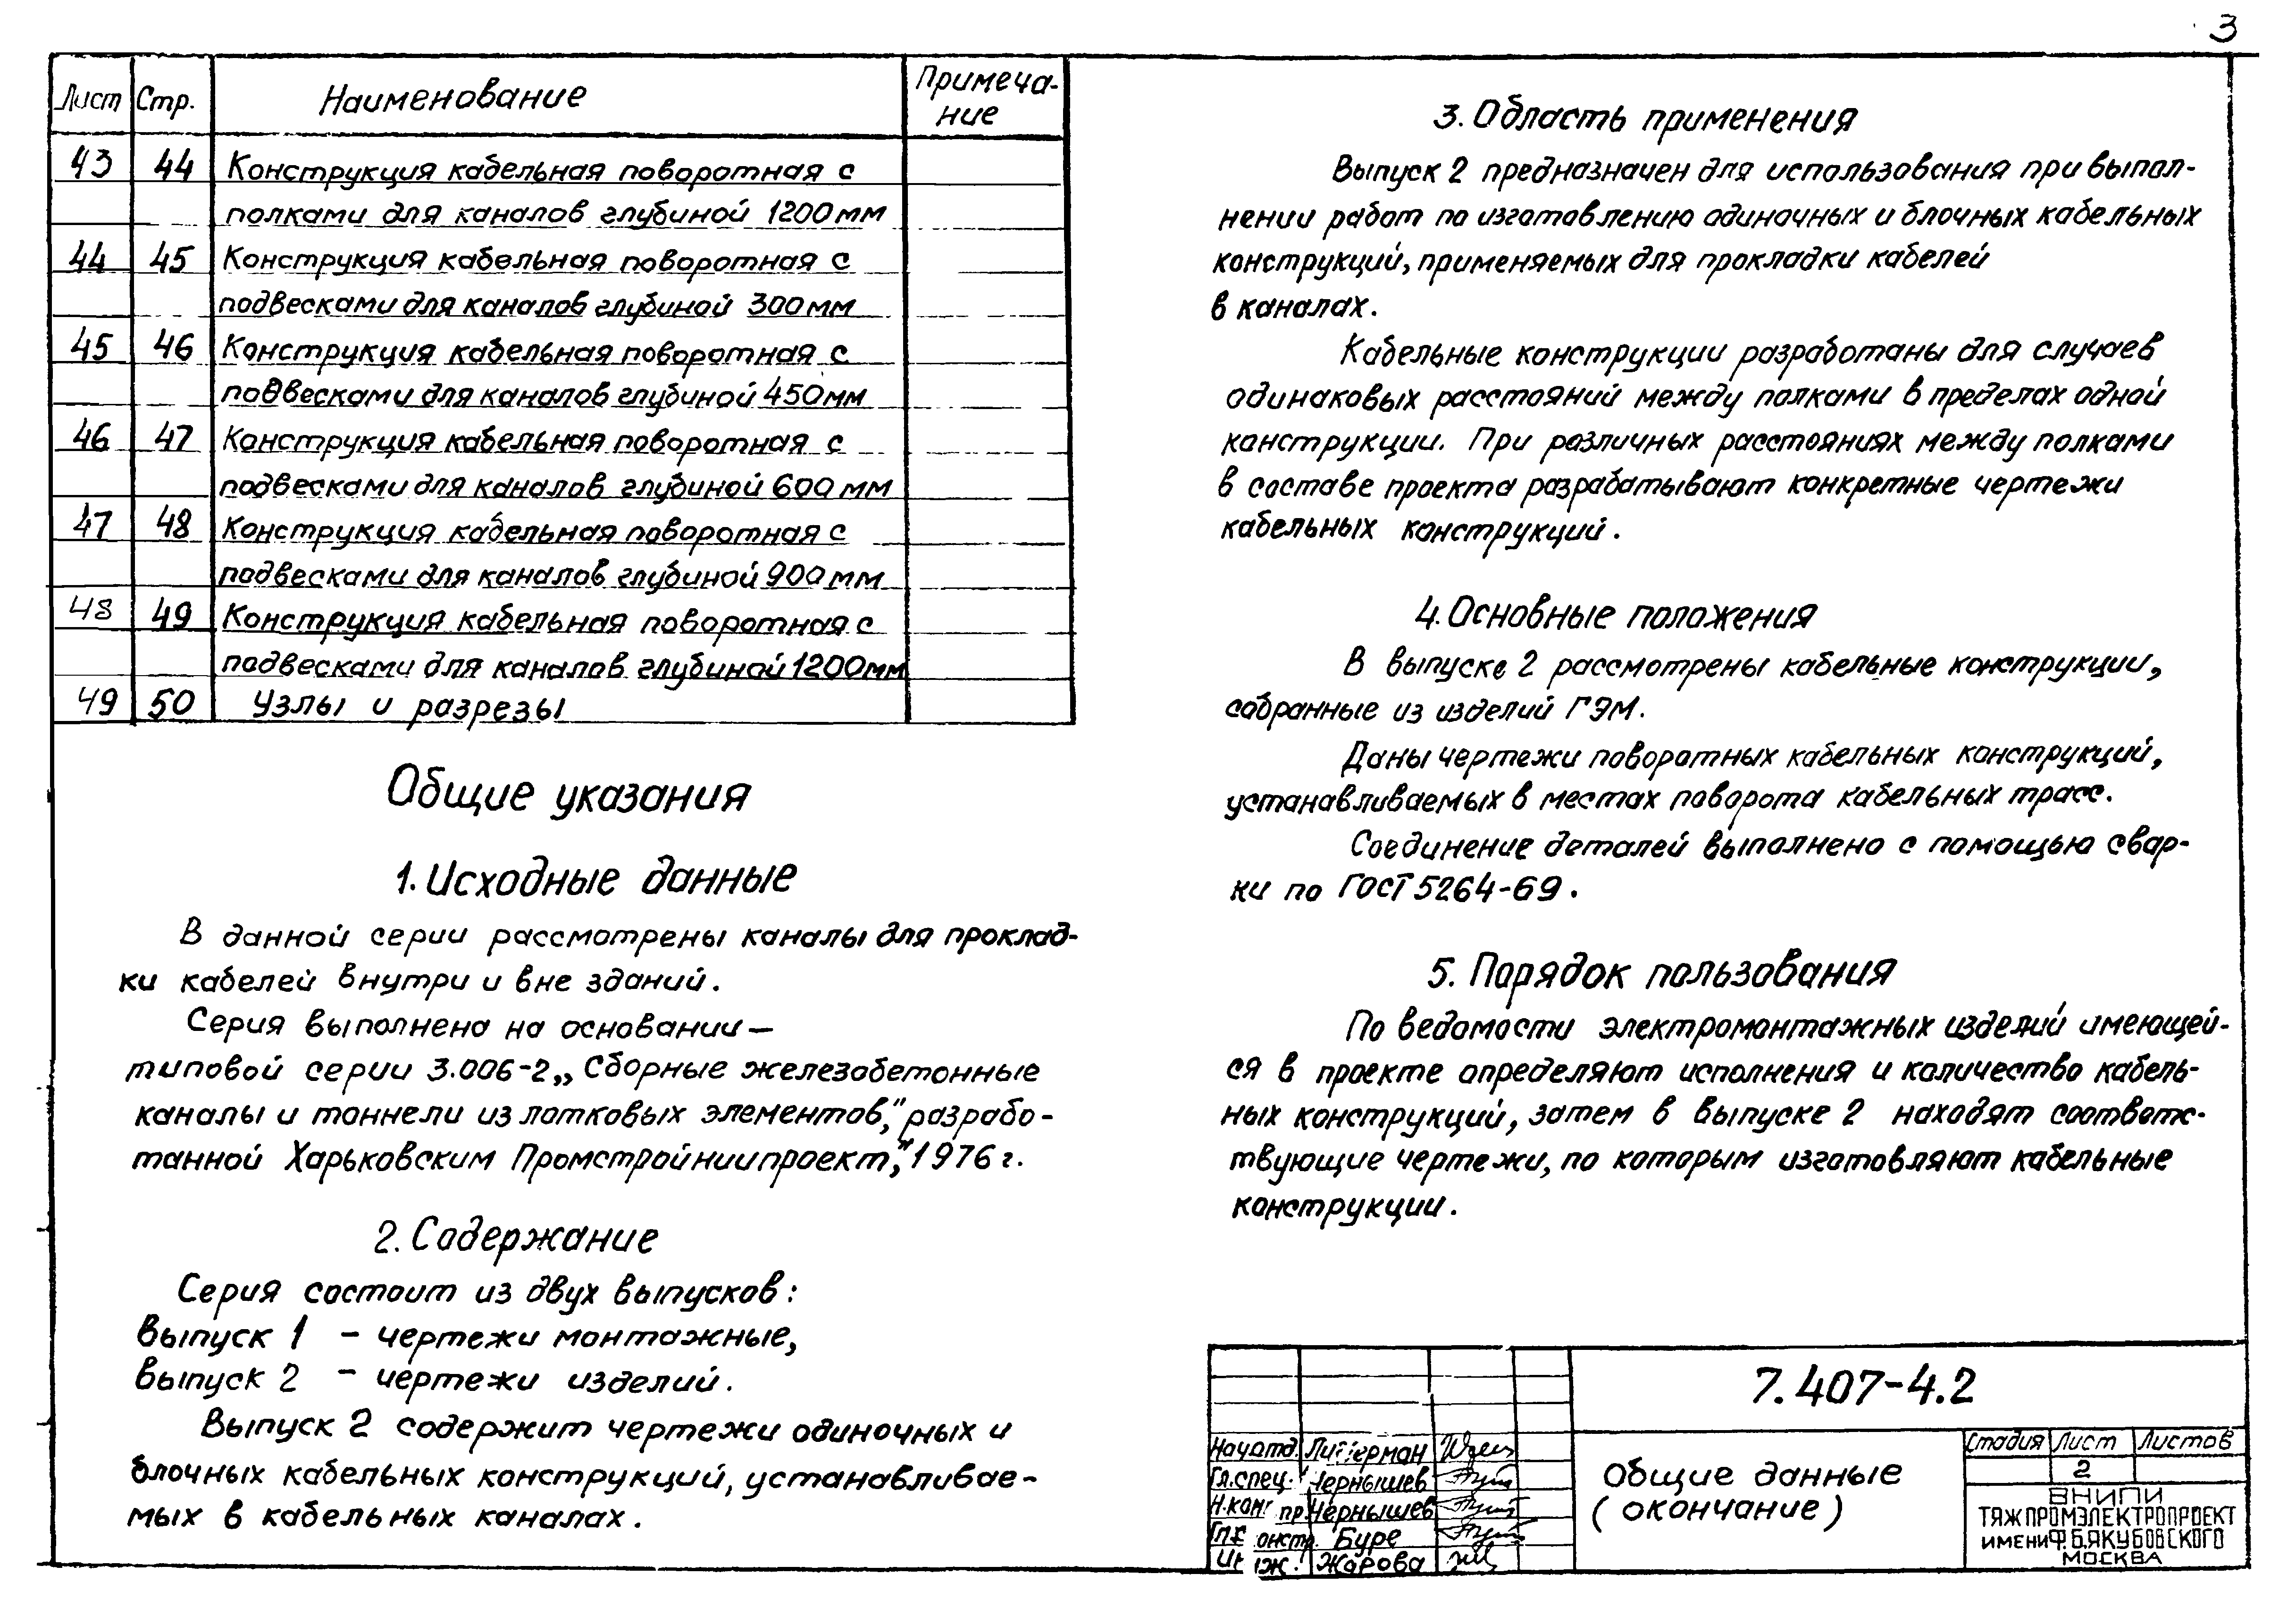 3
Лист Стр. Наименование Примеча-
ние
43 44 Конструкция кабельная поворотная с
полками для каналов глубиной 1200 мм
44 45 Конструкция кабельная поворотная с
подвесками для каналов глубиной 300 мм
45 46 Конструкция кабельная поворотная с
подвесками для каналов глубиной 450 мм
46 47 Конструкция кабельная поворотная с
подвесками для каналов глубиной 600 мм
47 48 Конструкция кабельная поворотная с
подвесками для каналов глубиной 900 мм
48 49 Конструкция кабельная поворотная с
подвесками для каналов глубиной 1200 мм
49 50 Узлы и разрезы
Общие указания
1. Исходные данные
В данной серии рассмотрены каналы для проклад-
ки кабелей внутри и вне зданий.
Серия выполнена на основании —
типовой серии 3.006-2 „Сборные железобетонные
каналы и тоннели из лотковых элементов," разрабо-
танной Харьковским Промстройниипроект," 1976 г.
2. Содержание
Серия состоит из двух выпусков:
выпуск 1 - чертежи монтажные,
выпуск 2 - чертежи изделий.
Выпуск 2 содержит чертежи одиночных и
блочных кабельных конструкций, устанавливае-
мых в кабельных каналах.
3. Область применения
Выпуск 2 предназначен для использования при выпол-
нении работ по изготовлению одиночных и блочных кабельных
конструкций, применяемых для прокладки кабелей
в каналах.
Кабельные конструкции разработаны для случаев
одинаковых расстояний между полками в пределах одной
конструкции. При различных расстояниях между полками
в составе проекта разрабатывают конкретные чертежи
кабельных конструкций.
4. Основные положения
В выпуске 2 рассмотрены кабельные конструкции,
собранные из изделий ГЭМ.
Даны чертежи поворотных кабельных конструкций,
устанавливаемых в местах поворота кабельных трасс.
Соединение деталей выполнено с помощью свар-
ки по ГОСТ 5264-69.
5. Порядок пользования
По ведомости электромонтажных изделий имеющей-
ся в проекте определяют исполнения и количество кабель-
ных конструкций, затем в выпуске 2 находят соответс-
твующие чертежи, по которым изготовляют кабельные
конструкции.
7.407-4.2
Нач.отд.
Гл.спец. Чернышев
Н.конт пр. Чернышев
Буре
Жарова
Общие данные
(окончание)
Стадия Лист Листов
2
ВНИПИ
ТЯЖПРОМЭЛЕКТРОПРОЕКТ
ИМЕНИ Ф.Б.ЯКУБОВСКОГО
МОСКВА